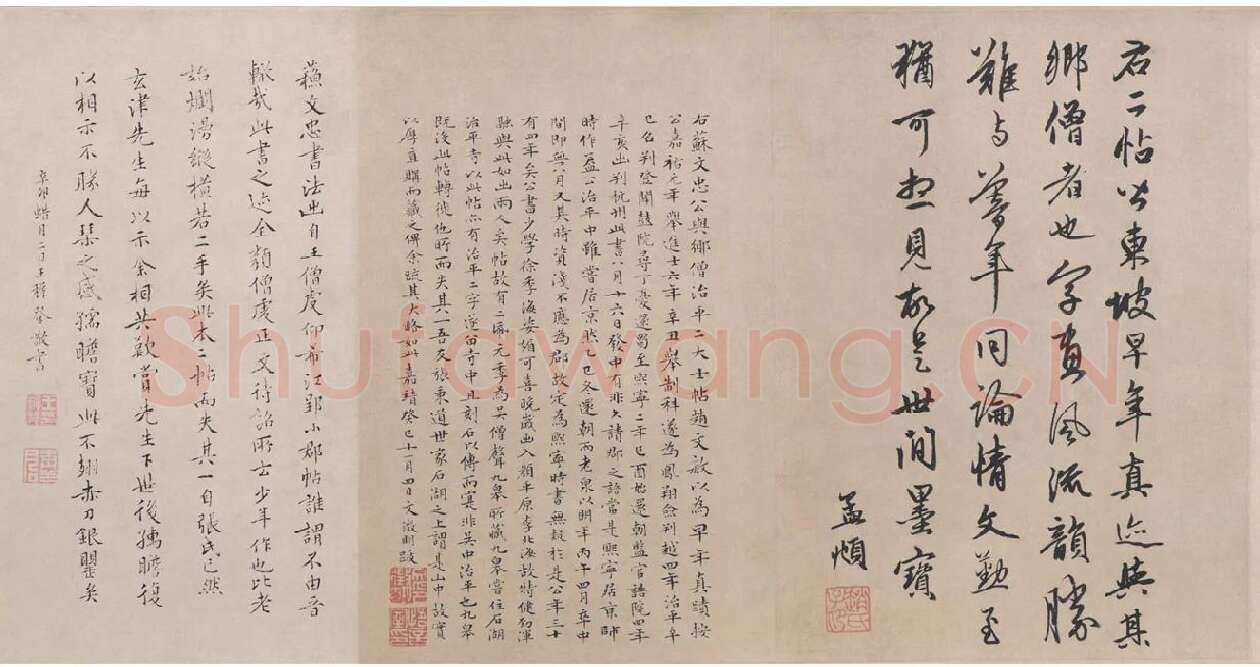 右二帖皆東坡早年真迹與其
鄉僧者也字畫風流韻勝
難与暮年同論情文勤至
猶可想見故是世間墨寶
孟頫
右蘇文忠公與鄉僧治平二大士帖趙文敏以為早年真蹟按
公嘉祐元年舉進士六年辛丑舉制科遂為鳳翔僉判越四年治平乙
巳召判登聞鼓院尋丁憂還蜀至熙寧二年己酉始還朝監官誥院四年
辛亥出判杭州此書八月十六日發中有非久請郡之語當是熙寧居京師
時作蓋公治平中雖嘗居京然乙巳冬還朝而老泉以明年丙午四月卒中
間即無八月又其時資淺不應為郡故定為熙寧時書無疑於是公年三十
有四年矣公書少學徐季海姿媚可喜晚歲出入顏平原李北海故特健勁渾
融與此如出兩人矣帖故有二元季為吳僧聲九皋所藏九皋嘗住石湖
治平寺以此帖亦有治平二字遂留寺中且刻石以傳而寔非吳中治平也九皋
既沒此帖轉徙他所而失其一吾友張秉道世家石湖之上謂是山中故實
以厚直購而藏之俾余疏其大略如此嘉靖癸巳十一月四日文徵明跋
蘇文忠書法出自王僧虔仰希江郢小郡帖誰謂不由晉
轍哉此書之迹全類僧虔正文待詔所云少年作也比老
始爛漫縱橫若二手矣此本二帖而失其一自張氏已然
玄津先生每以示余相共歎賞先生下世後孺瞻復
以相示不勝人琴之感孺瞻寶此不翅赤刀銀甖矣
辛卯蜡月二日王穉登敬書
Shufawang.CN